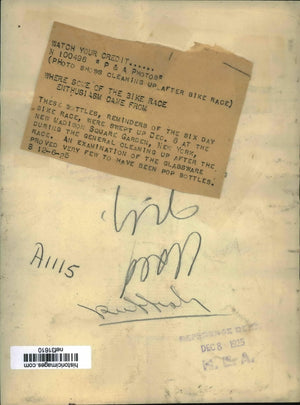 WATCH YOUR CREDIT......
N 100496 "P & A PHOTOS"
(PHOTO SHOWS CLEANING UP AFTER BIKE RACE)
WHERE SOME OF THE BIKE RACE
ENTHUSIASM CAME FROM
THESE BOTTLES, REMINDERS OF THE SIX DAY
BIKE RACE, WERE SWEPT UP DEC. 6 AT THE
NEW MADISON SQUARE GARDEN, NEW YORK,
DURING THE GENERAL CLEANING UP AFTER THE
RACE. AN EXAMINATION OF THE GLASSWARE
PROVED VERY FEW TO HAVE BEEN POP BOTTLES.
S 12-6-25
A1115
REFERENCE DEPT.
DEC 8 1925
N. E. A.
historicimages.com
nef31610